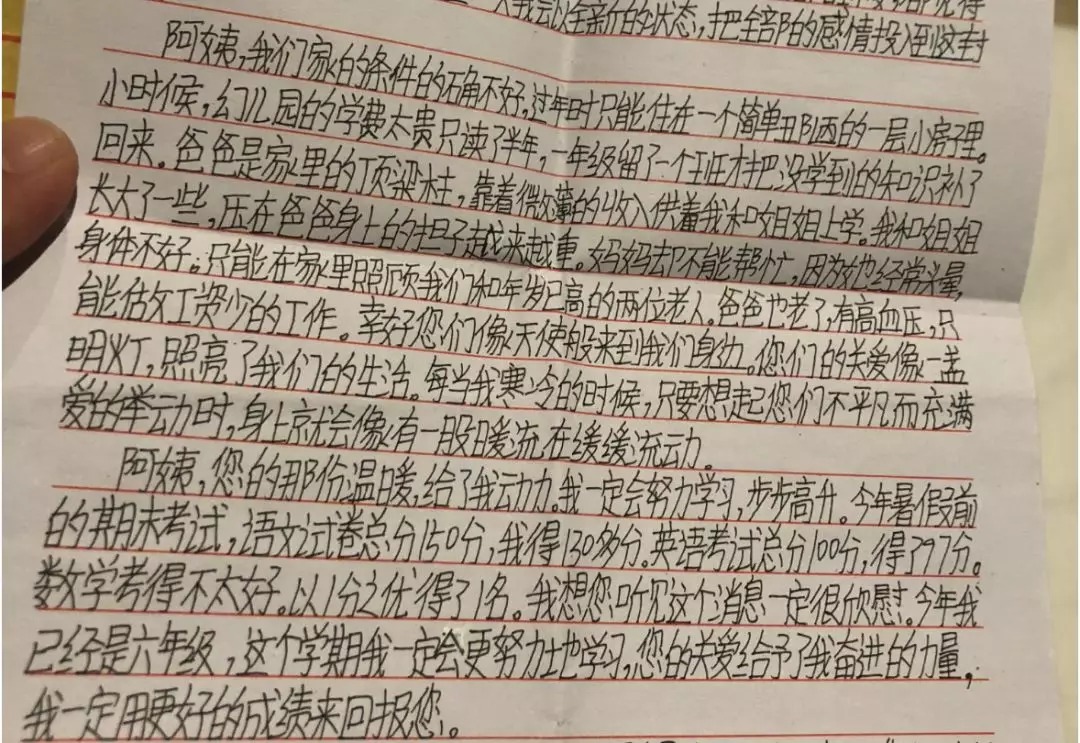 我会以全新的状态，把全部的感情投入到这封
阿姨，我们家的条件的确不好，过年时只能住在一个简单丑陋的一层小房子里。
小时候，幼儿园的学费太贵只读了半年，一年级留了一个班才把没学到的知识补了
回来。爸爸是家里的顶梁柱，靠着微薄的收入供着我和姐姐上学。我和姐姐
长大了一些，压在爸爸身上的担子越来越重。妈妈却不能帮忙，因为她经常头晕，
身体不好。只能在家里照顾我们和年岁已高的两位老人。爸爸也老了，有高血压，只
能做工资少的工作。幸好您们像天使般来到我们身边。您们的关爱像一盏
明灯，照亮了我们的生活。每当我寒冷的时候，只要想起您们不平凡而充满
爱的举动时，身上就会像有一股暖流在缓缓流动。
阿姨，您的那份温暖，给了我动力。我一定会努力学习，步步高升。今年暑假前
的期末考试，语文试卷总分150分，我得130多分。英语考试总分100分，得了97分。
数学考得不太好。以1分之优得了1名。我想您听见这个消息一定很欣慰。今年我
已经是六年级，这个学期我一定会更努力地学习，您的关爱给予了我奋进的力量，
我一定用更好的成绩来回报您。